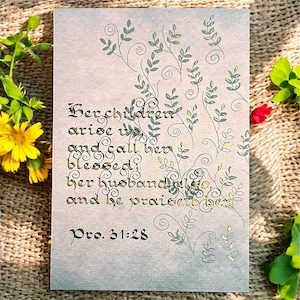 Her children
arise up,
and call her
blessed;
her husband also,
and he praiseth her.
Pro. 31:28